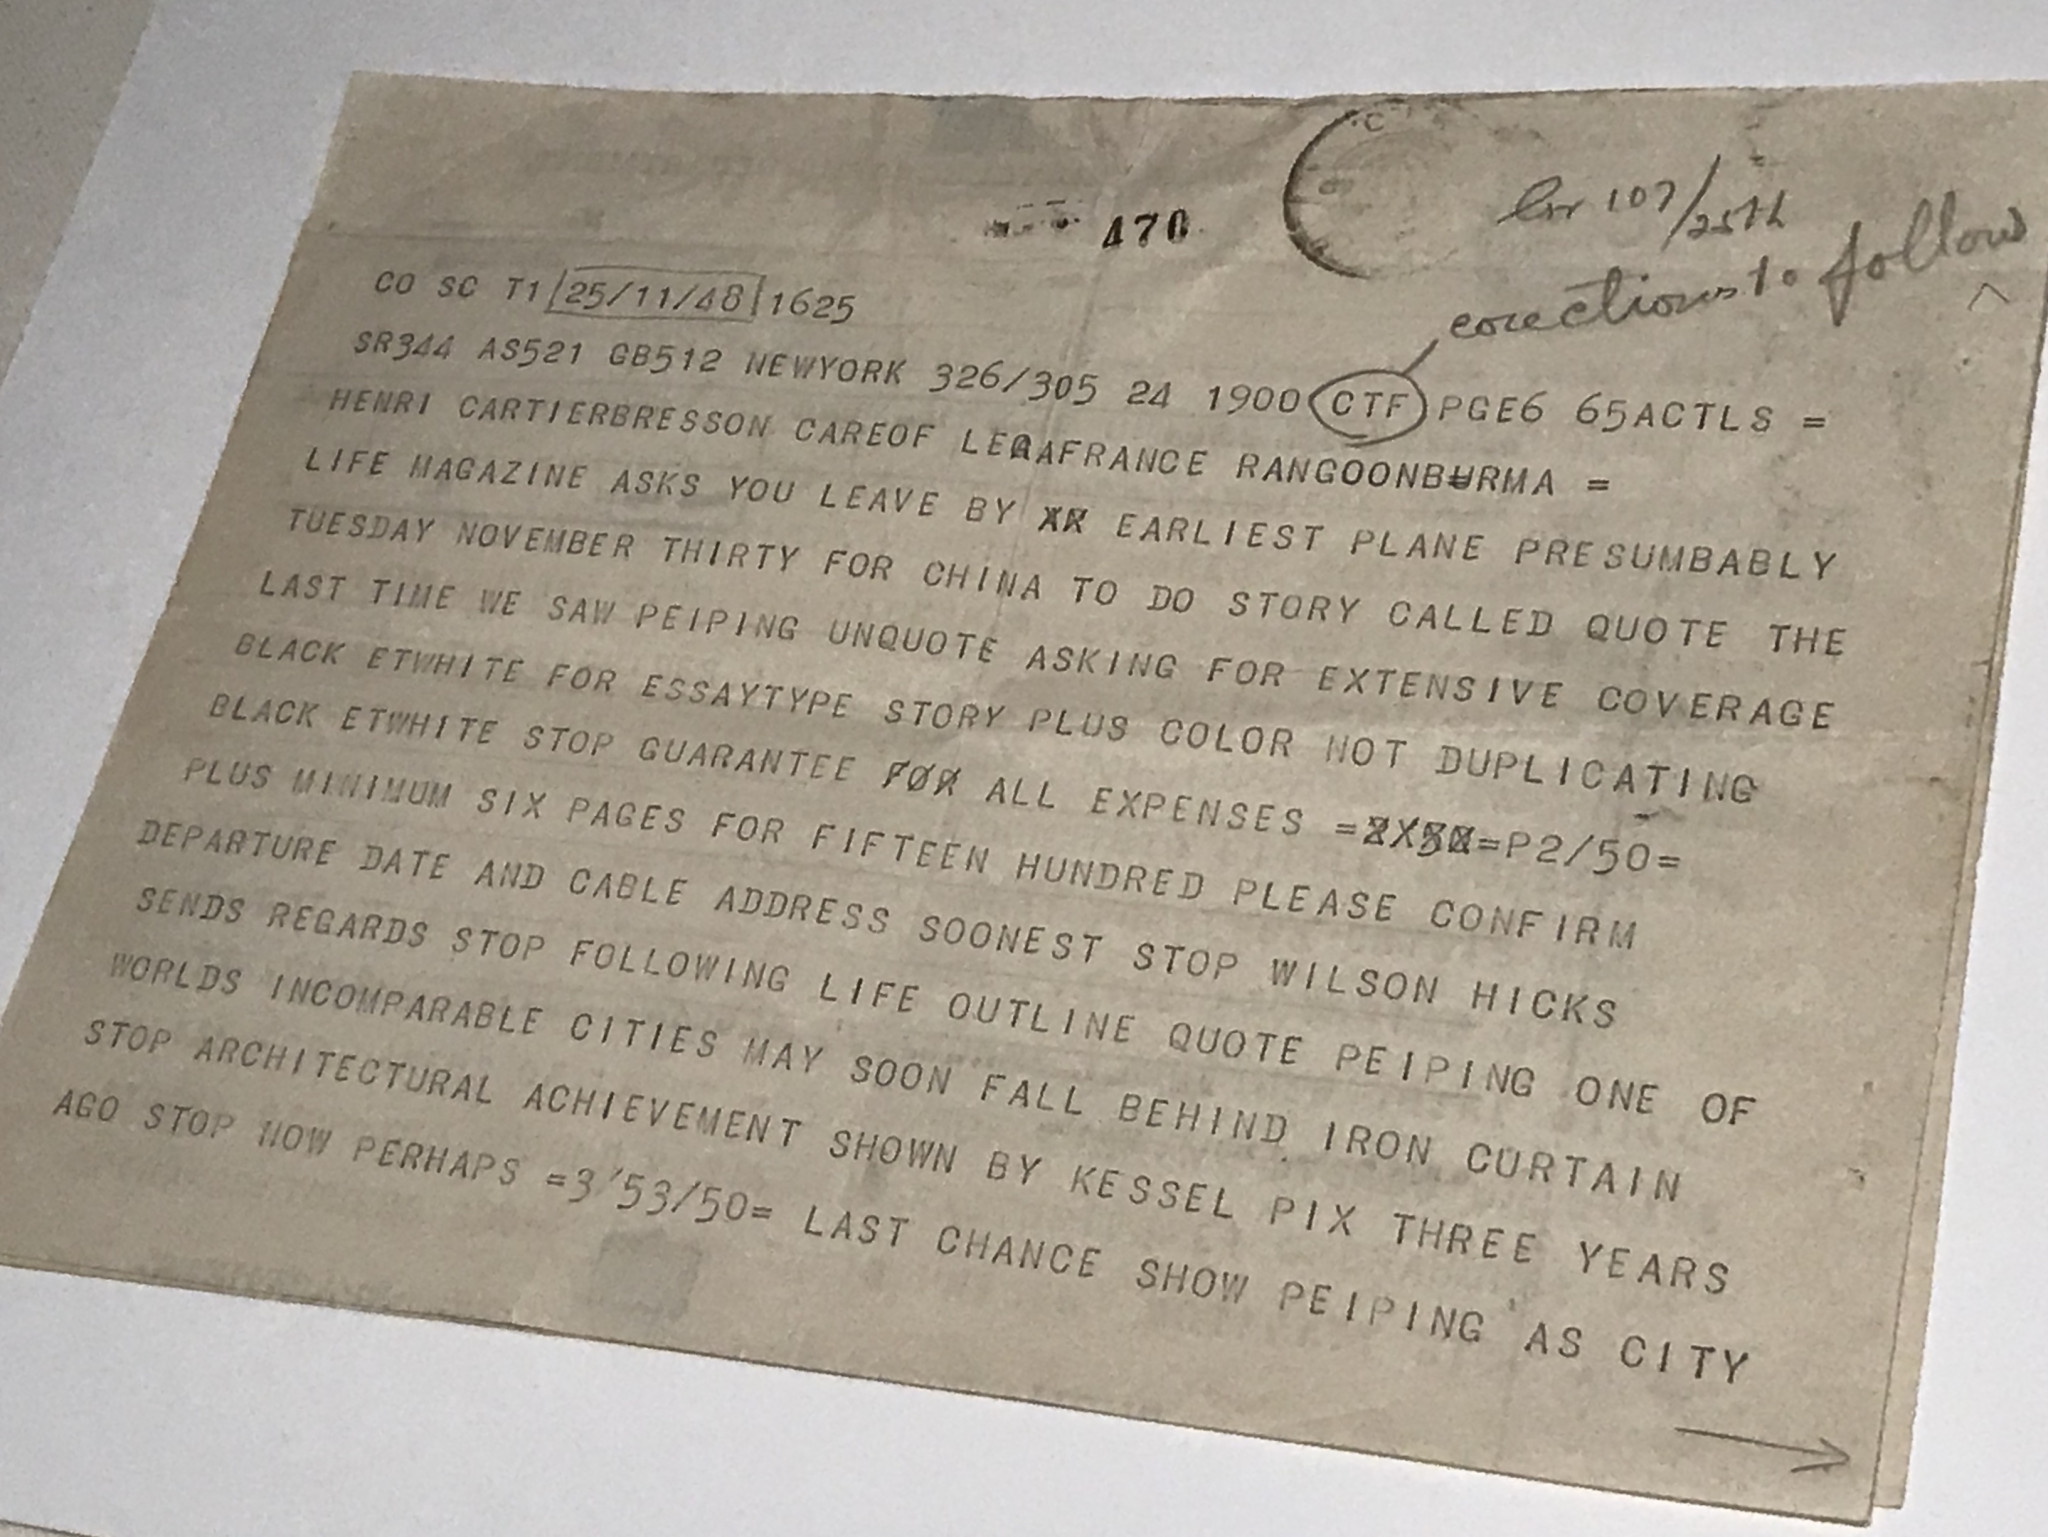 470
107/25th
corections to follow
CO SC T1 25/11/48 1625
SR344 AS521 GB512 NEWYORK 326/305 24 1900 CTF PGE6 65ACTLS =
HENRI CARTIERBRESSON CAREOF LEGAFRANCE RANGOONBURMA =
LIFE MAGAZINE ASKS YOU LEAVE BY EARLIEST PLANE PRESUMBABLY
TUESDAY NOVEMBER THIRTY FOR CHINA TO DO STORY CALLED QUOTE THE
LAST TIME WE SAW PEIPING UNQUOTE ASKING FOR EXTENSIVE COVERAGE
BLACK ETWHITE FOR ESSAYTYPE STORY PLUS COLOR NOT DUPLICATING
BLACK ETWHITE STOP GUARANTEE FOR ALL EXPENSES = =P2/50=
PLUS MINIMUM SIX PAGES FOR FIFTEEN HUNDRED PLEASE CONFIRM
DEPARTURE DATE AND CABLE ADDRESS SOONEST STOP WILSON HICKS
SENDS REGARDS STOP FOLLOWING LIFE OUTLINE QUOTE PEIPING ONE OF
WORLDS INCOMPARABLE CITIES MAY SOON FALL BEHIND IRON CURTAIN
STOP ARCHITECTURAL ACHIEVEMENT SHOWN BY KESSEL PIX THREE YEARS
AGO STOP NOW PERHAPS =3'53/50= LAST CHANCE SHOW PEIPING AS CITY